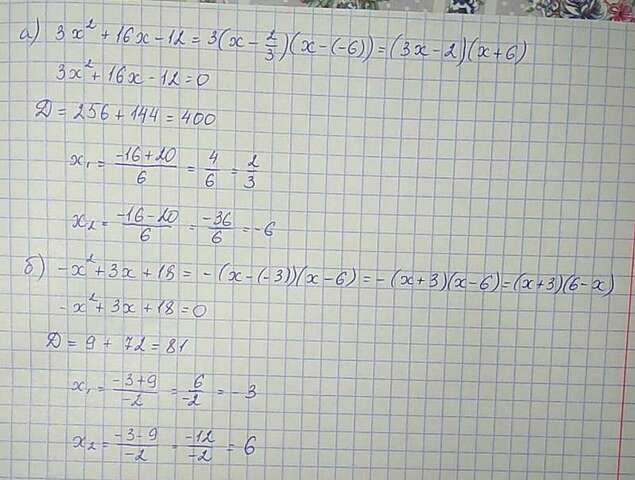 а) 3x² + 16x - 12 = 3(x - 2/3)(x - (-6)) = (3x - 2)(x + 6)
3x² + 16x - 12 = 0
Д = 256 + 144 = 400
x₁ = (-16 + 20)/6 = 4/6 = 2/3
x₂ = (-16 - 20)/6 = -36/6 = -6
б) -x² + 3x + 18 = - (x - (-3))(x - 6) = - (x + 3)(x - 6) = (x + 3)(6 - x)
-x² + 3x + 18 = 0
Д = 9 + 72 = 81
x₁ = (-3 + 9)/-2 = 6/-2 = -3
x₂ = (-3 - 9)/-2 = -12/-2 = 6